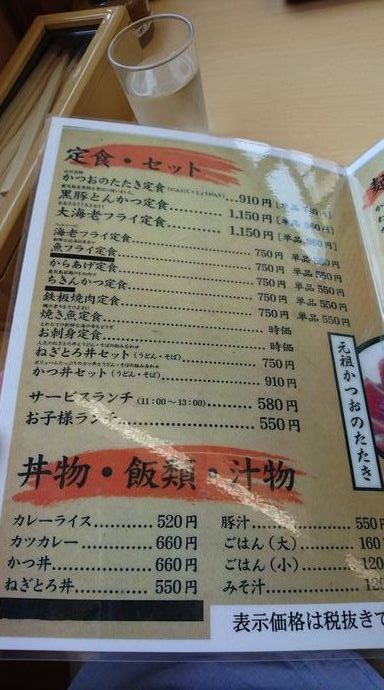 定食・セット
かつおのたたき定食
…910円 [単品 760円]
黒豚とんかつ定食…1,150円 [単品 960円]
大海老フライ定食…1,150円 [単品 960円]
海老フライ定食…750円 単品 550円
魚フライ定食…750円 単品 550円
からあげ定食…750円 単品 550円
ちきんかつ定食…750円 単品 550円
鉄板焼肉定食…750円 単品 550円
焼き魚定食…時価
お刺身定食…時価
ねぎとろ丼セット(うどん・そば)…750円
かつ丼セット(うどん・そば)…910円
サービスランチ(11:00〜13:00)…580円
お子様ランチ…550円
元祖かつおのたたき
丼物・飯類・汁物
カレーライス…520円
カツカレー…660円
かつ丼…660円
ねぎとろ丼…550円
豚汁…550円
ごはん(大)…160
ごはん(小)…120
みそ汁…
表示価格は税抜きで